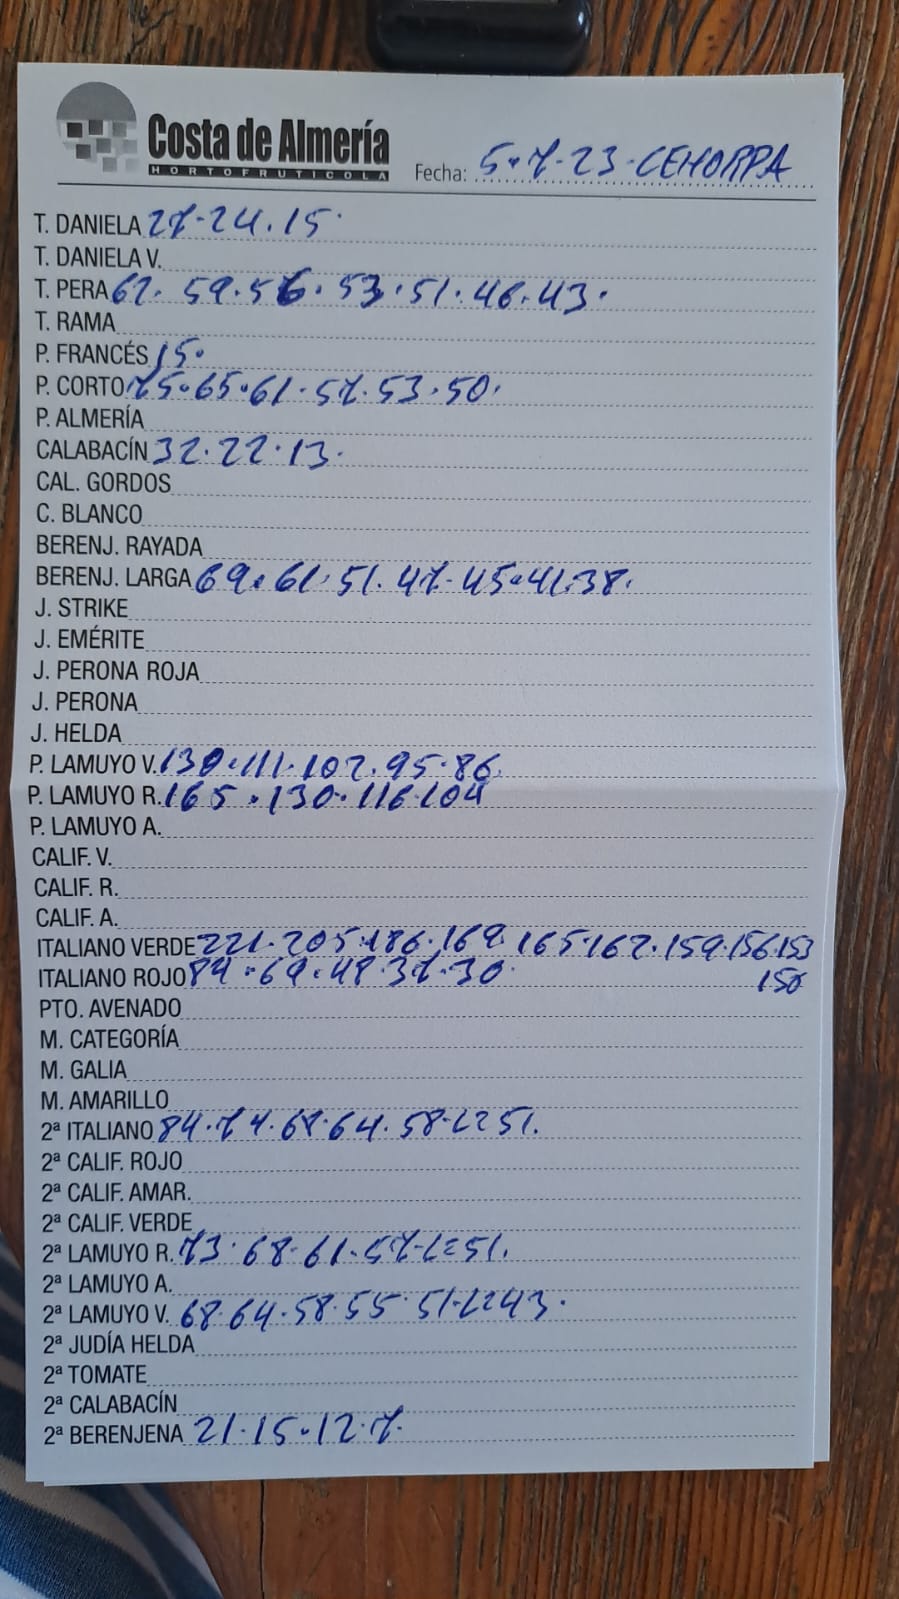 Costa de Almería
HORTOFRUTICOLA
Fecha: 5.7.23.CEHORPA
T. DANIELA 27.24.15.
T. DANIELA V.
T. PERA 62. 59.56.53.51.46.43.
T. RAMA
P. FRANCÉS 15.
P. CORTO 75.65.61.57.53.50.
P. ALMERÍA
CALABACÍN 32.22.13.
CAL. GORDOS
C. BLANCO
BERENJ. RAYADA
BERENJ. LARGA 69.61.51.47.45.41.38.
J. STRIKE
J. EMÉRITE
J. PERONA ROJA
J. PERONA
J. HELDA
P. LAMUYO V. 130.111.102.95.86.
P. LAMUYO R. 165.130.116.104
P. LAMUYO A.
CALIF. V.
CALIF. R.
CALIF. A.
ITALIANO VERDE 221.205.186.169.165.162.159.156.153
ITALIANO ROJO 84.69.48.37.30. 150
PTO. AVENADO
M. CATEGORÍA
M. GALIA
M. AMARILLO
2ª ITALIANO 84.74.68.64.58. 51.
2ª CALIF. ROJO
2ª CALIF. AMAR.
2ª CALIF. VERDE
2ª LAMUYO R. 73.68.61.57. 51.
2ª LAMUYO A.
2ª LAMUYO V. 68.64.58.55.51. 43.
2ª JUDÍA HELDA
2ª TOMATE
2ª CALABACÍN
2ª BERENJENA 21.15.12.7.